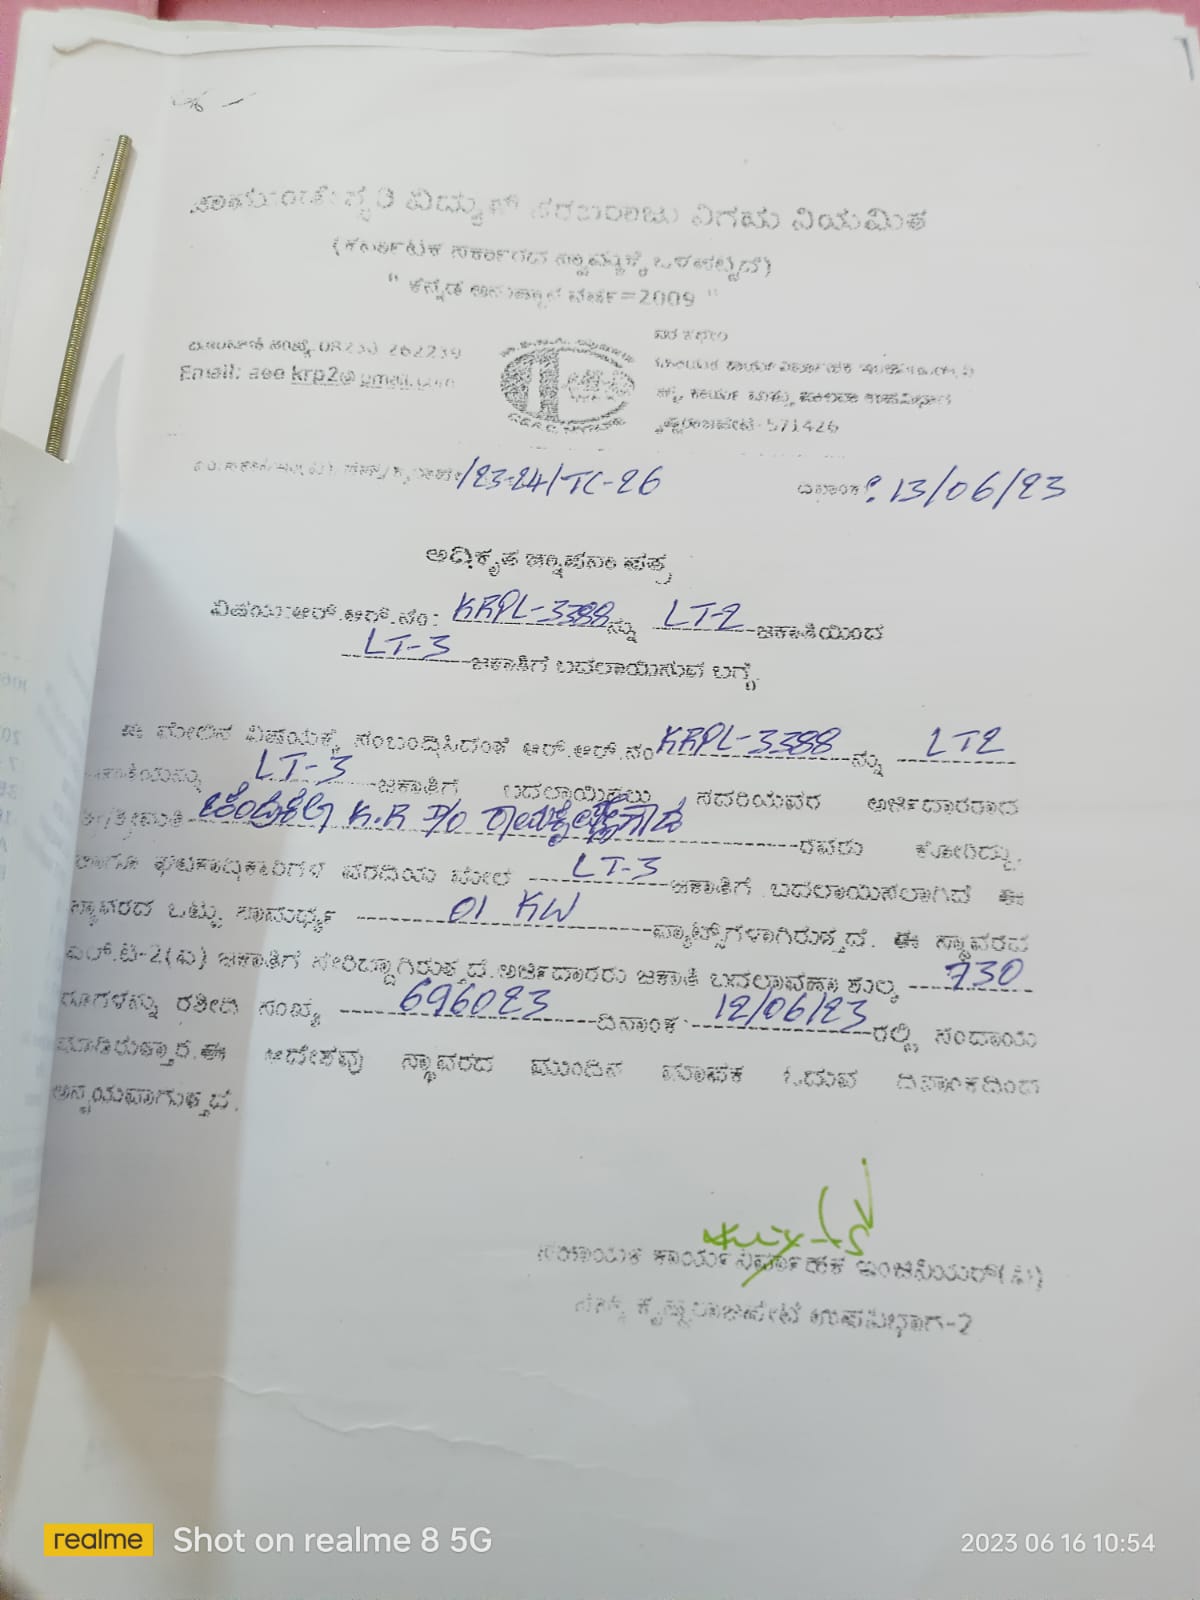 ಚಾಮುಂಡೇಶ್ವರಿ ವಿದ್ಯುತ್ ಸರಬರಾಜು ನಿಗಮ ನಿಯಮಿತ
(ಕರ್ನಾಟಕ ಸರ್ಕಾರದ ಸ್ವಾಮ್ಯಕ್ಕೆ ಒಳಪಟ್ಟಿದೆ)
" ಕನ್ನಡ ಅನುಷ್ಠಾನ ವರ್ಷ=2009 "
ದೂರವಾಣಿ ಸಂಖ್ಯೆ. 08230 262239
Email: aee krp2@gmail.com
ರವರ ಕಛೇರಿ
ಕೃಷ್ಣರಾಜಪೇಟೆ-571426
/23-24/TC-26
ದಿನಾಂಕ: 13/06/23
ಅಧಿಕೃತ ಜ್ಞಾಪನಾ ಪತ್ರ
ವಿಷಯ:ಆರ್.ಆರ್.ನಂ: KRPL-3388 ನ್ನು LT-2 ಜಕಾತಿಯಿಂದ
LT-3 ಜಕಾತಿಗೆ ಬದಲಾಯಿಸುವ ಬಗ್ಗೆ.
ಈ ಮೇಲಿನ ವಿಷಯಕ್ಕೆ ಸಂಬಂಧಿಸಿದಂತೆ ಆರ್.ಆರ್.ನಂ KRPL-3388 ನ್ನು LT2
ಜಕಾತಿಯನ್ನು LT-3 ಜಕಾತಿಗೆ ಬದಲಾಯಿಸಲು ಸದರಿಯವರ ಅರ್ಜಿದಾರರಾದ
ಶ್ರೀ/ಶ್ರೀಮತಿ ಚಂದ್ರಕಲಾ K.R ರವರು ಕೋರಿದ್ದು,
ಹಾಗೂ ಘಟಕಾಧಿಕಾರಿಗಳ ವರದಿಯ ಮೇಲೆ LT-3 ಜಕಾತಿಗೆ ಬದಲಾಯಿಸಲಾಗಿದೆ ಈ
ಸ್ಥಾವರದ ಒಟ್ಟು ಸಾಮರ್ಥ್ಯ 01 KW ವ್ಯಾಟ್ಸ್‌ಗಳಾಗಿರುತ್ತದೆ. ಈ ಸ್ಥಾವರವು
ಎಲ್.ಟಿ-2(ಎ) ಜಕಾತಿಗೆ ಸೇರಿದ್ದಾಗಿರುತ್ತದೆ.ಅರ್ಜಿದಾರರು ಜಕಾತಿ ಬದಲಾವಣಾ ಶುಲ್ಕ 730
ರೂಗಳನ್ನು ರಶೀದಿ ಸಂಖ್ಯೆ 696023 ದಿನಾಂಕ 12/06/23 ರಲ್ಲಿ ಸಂದಾಯ
ಮಾಡಿರುತ್ತಾರೆ.ಈ ಆದೇಶವು ಸ್ಥಾವರದ ಮುಂದಿನ ಮಾಪಕ ಓದುವ ದಿನಾಂಕದಿಂದ
ಅನ್ವಯವಾಗುತ್ತದೆ.
ಸಹಾಯಕ ಕಾರ್ಯನಿರ್ವಾಹಕ ಇಂಜಿನಿಯರ್(ವಿ)
ಕೃಷ್ಣರಾಜಪೇಟೆ ಉಪವಿಭಾಗ-2
realme Shot on realme 8 5G
2023 06 16 10:54